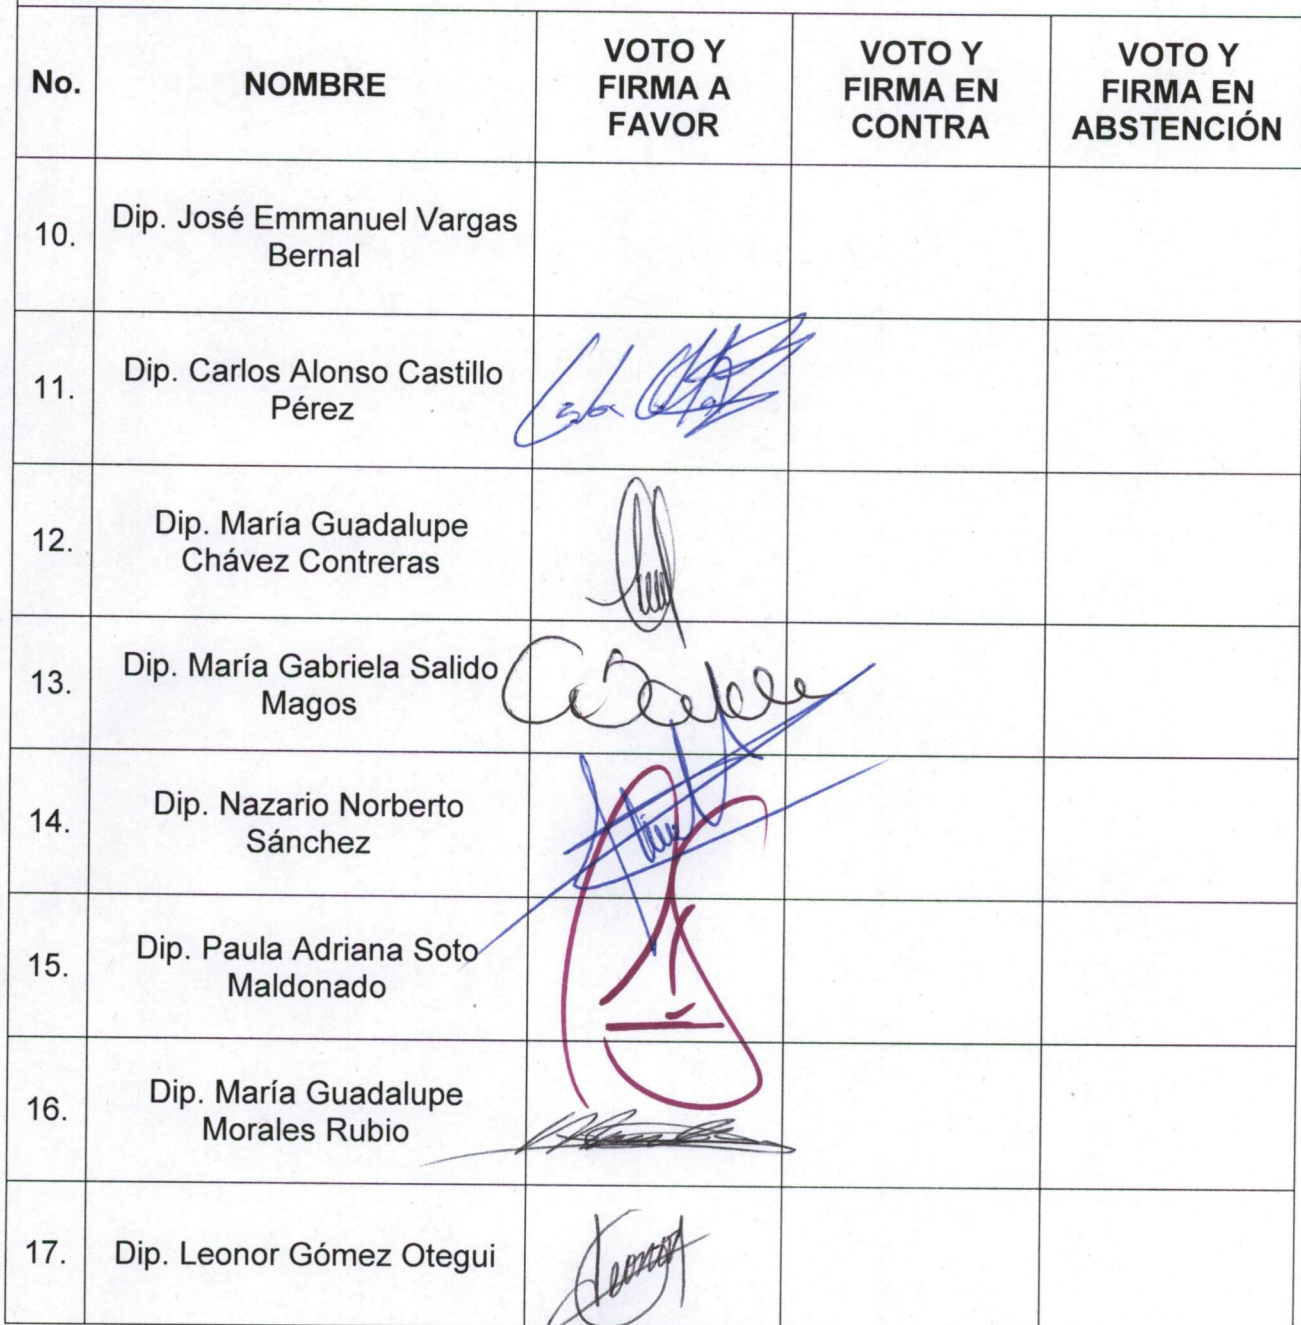 No.
NOMBRE
VOTO Y
FIRMA A
FAVOR
VOTO Y
FIRMA EN
CONTRA
VOTO Y
FIRMA EN
ABSTENCIÓN
10.
Dip. José Emmanuel Vargas
Bernal
11.
Dip. Carlos Alonso Castillo
Pérez
12.
Dip. María Guadalupe
Chávez Contreras
13.
Dip. María Gabriela Salido
Magos
14.
Dip. Nazario Norberto
Sánchez
15.
Dip. Paula Adriana Soto
Maldonado
16.
Dip. María Guadalupe
Morales Rubio
17.
Dip. Leonor Gómez Otegui
Leonor